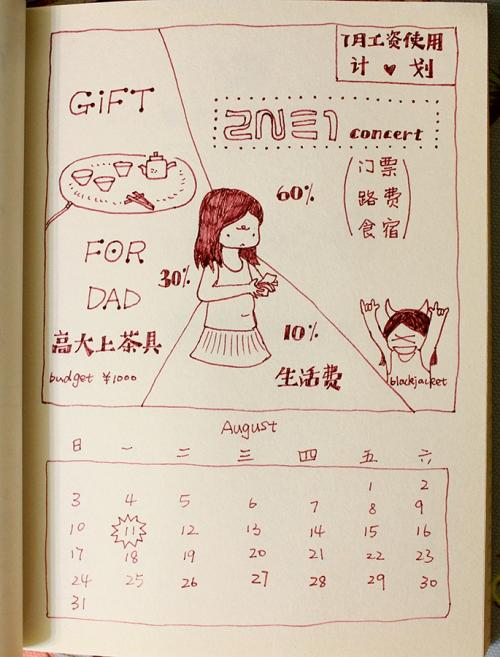 7月工资使用
计♥划
GiFT
2NE1 concert
60%
(门票
路费
食宿)
FOR
DAD
30%
高大上茶具
budget ¥1000
10%
生活费
blackjacket
August
日 一 二 三 四 五 六
1 2
3 4 5 6 7 8 9
10 11 12 13 14 15 16
17 18 19 20 21 22 23
24 25 26 27 28 29 30
31